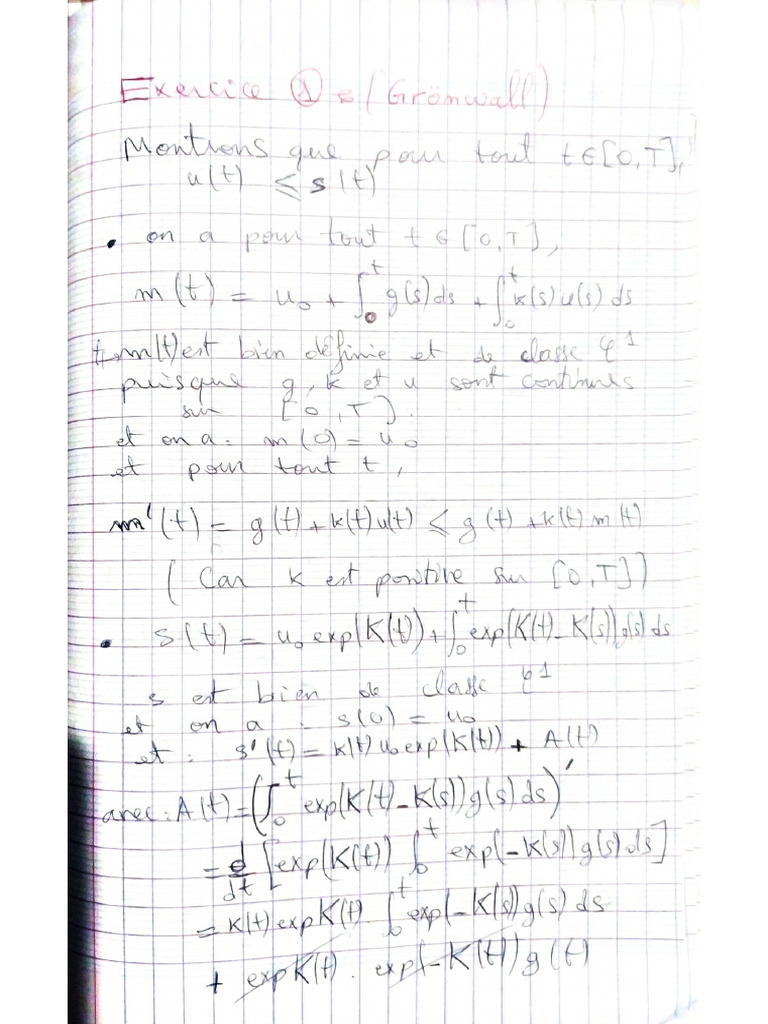 Exercice ① : (Grönwall)
Montrons que pour tout t ∈ [0,T],
u(t) ≤ s(t)
• on a pour tout t ∈ [0,T],
m(t) = u₀ + ∫₀ᵗ g(s)ds + ∫₀ᵗ k(s)u(s)ds
t↦m(t) est bien définie et de classe 𝒞¹
puisque g, k et u sont continues
sur [0,T].
et on a : m(0) = u₀
et pour tout t,
m'(t) = g(t) + k(t)u(t) ≤ g(t) + k(t)m(t)
(Car k est positive sur [0,T])
• s(t) = u₀ exp(K(t)) + ∫₀ᵗ exp(K(t)-K(s))g(s)ds
s est bien de classe 𝒞¹
et on a : s(0) = u₀
et : s'(t) = k(t)u₀exp(K(t)) + A(t)
avec : A(t) = (∫₀ᵗ exp(K(t)-K(s))g(s)ds)'
= d/dt [exp(K(t)) ∫₀ᵗ exp(-K(s))g(s)ds]
= k(t)expK(t) · ∫₀ᵗ exp(-K(s))g(s)ds
+ expK(t) . exp(-K(t))g(t)